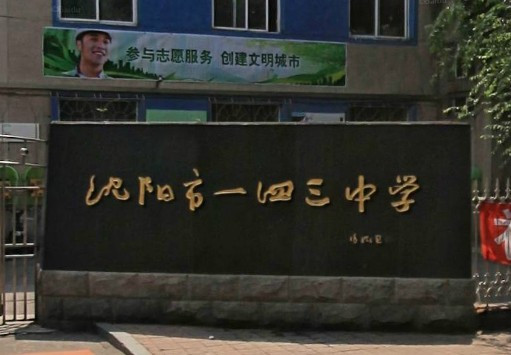 参与志愿服务 创建文明城市
沈阳市一四三中学